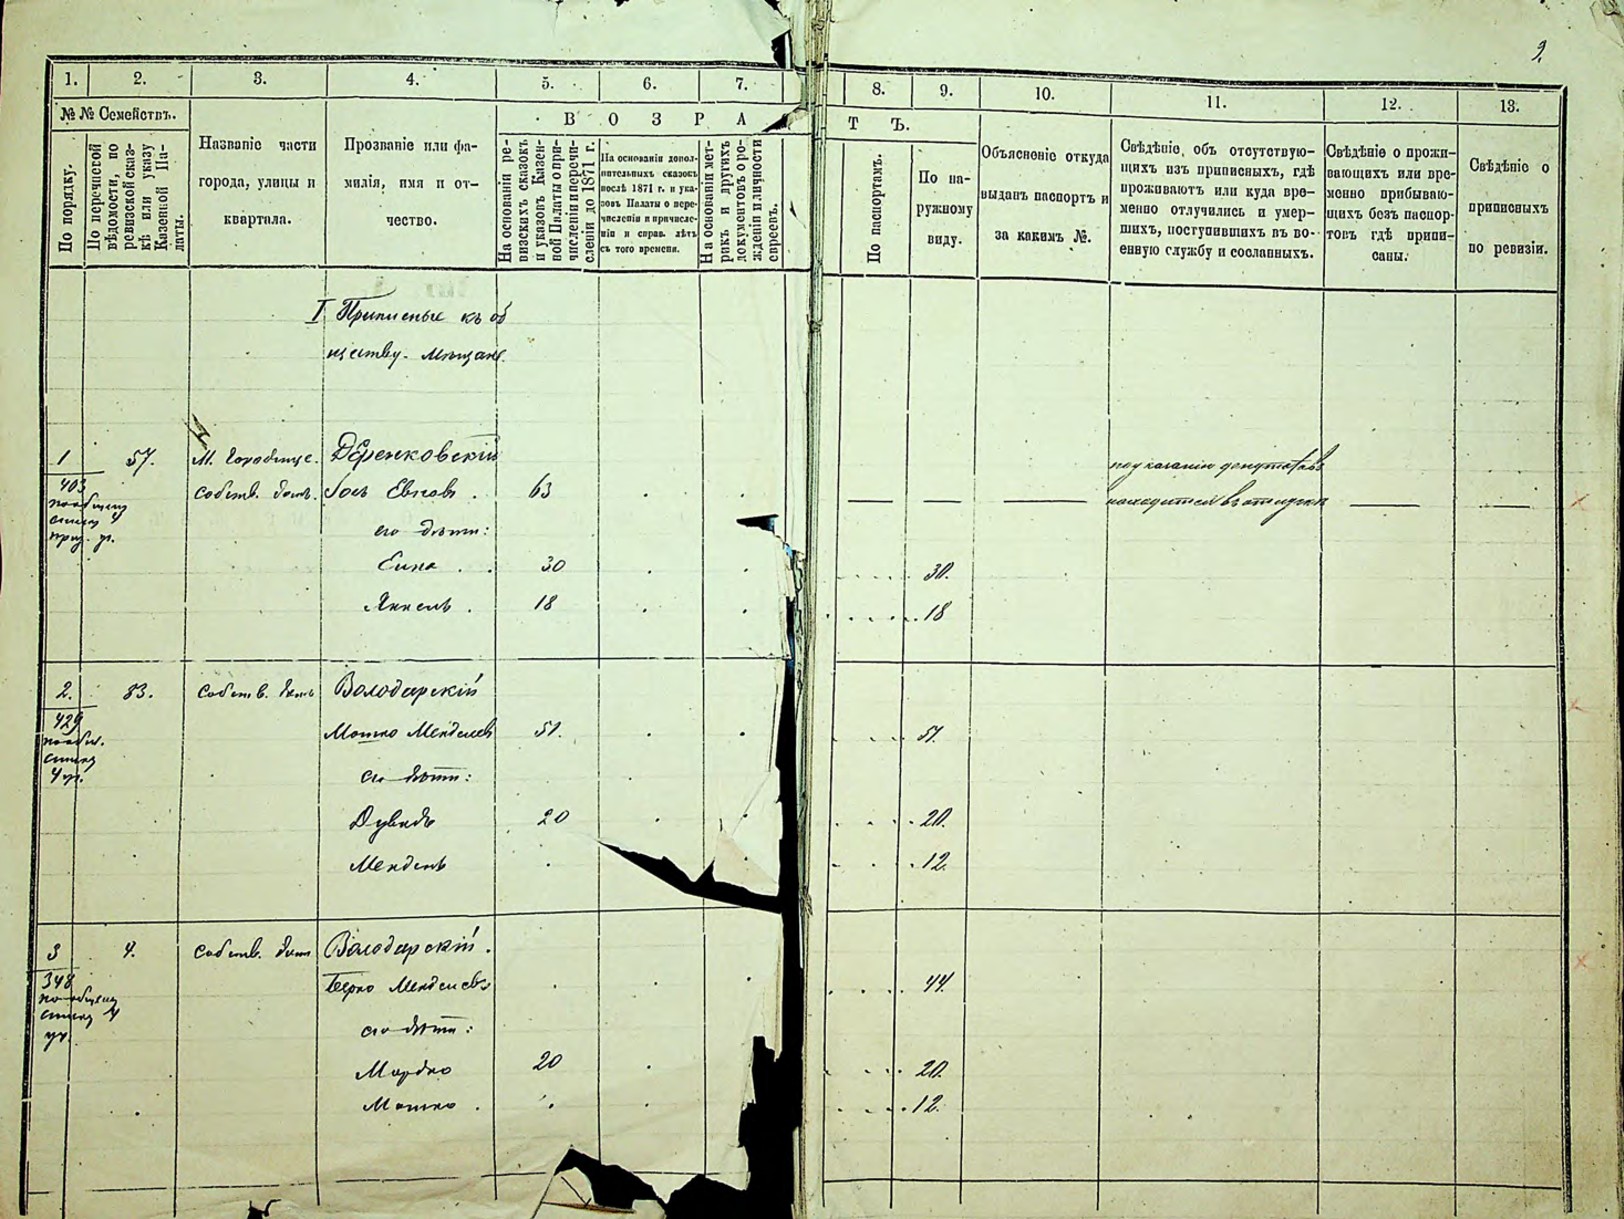 9.
1. 2. 3. 4. 5. 6. 7. 8. 9. 10. 11. 12. 13.
№ № Семействъ.
По порядку.
По перечневой
вѣдомости, по
ревизской сказ-
кѣ или указу
Казенной Па-
латы.
Названіе части
города, улицы и
квартала.
Прозваніе или фа-
милія, имя и от-
чество.
ВОЗРАСТЪ.
На основаніи ре-
визскихъ сказокъ
и указовъ Казен-
ной Палаты о при-
численіи и перечи-
сленіи до 1871 г.
На основаніи допол-
нительныхъ сказокъ
послѣ 1871 г. и ука-
зовъ Палаты о пере-
численіи и причисле-
ніи и справ. лѣтъ
съ того времени.
На основаніи мет-
рикъ и другихъ
документовъ о ро-
жденіи и личности
евреевъ.
По паспортамъ.
По на-
ружному
виду.
Объясненіе откуда
выданъ паспортъ и
за какимъ №.
Свѣдѣніе, объ отсутствую-
щихъ изъ приписныхъ, гдѣ
проживаютъ или куда вре-
менно отлучились и умер-
шихъ, поступившихъ въ во-
енную службу и сосланныхъ.
Свѣдѣніе о прожи-
вающихъ или вре-
менно прибываю-
щихъ безъ паспор-
товъ гдѣ припи-
саны.
Свѣдѣніе о
приписныхъ
по ревизіи.
I Приписные къ об
ществу. Мѣщане.
1 57. М. Городище. Деренковскій
403 собств. домъ. Іось Евновъ 63
по общему
списку 4
его дѣти:
Ейна 30 30.
Янкель 18 18
по указанію депутатовъ
находится въ отлучкѣ
2. 83. собств. домъ Володарскій
429 Мошко Менделев 51. 51.
по общ.
списку
4 уч.
его дѣти:
Дувидъ 20 20.
Мендель 12.
3 4. собств. домъ Володарскій.
348 Берко Менделевъ 44.
по общему
списку 4
уч.
его дѣти:
Мордко 20 20.
Мошко 12.